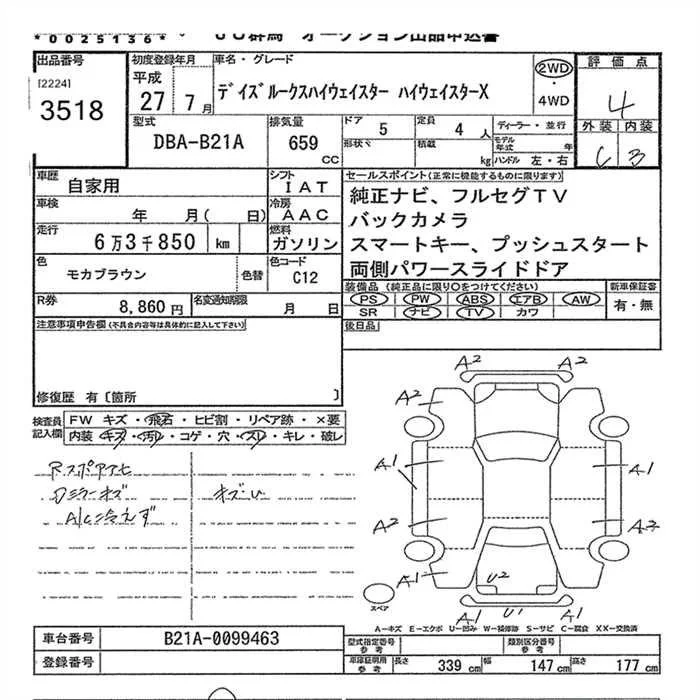 *0025136*
JU群馬 オークション出品申込書
出品番号 初度登録年月 車名・グレード 評価点
[2224] 平成 デイズルークスハイウェイスター ハイウェイスターX 2WD
3518 27年 7月 ・4WD 4
型式 排気量 ドア 5 定員 4人 ディーラー・並行 外装 内装
DBA-B21A 659 CC 形状 積載 kg モデル年式 年 C B
ハンドル 左・右
車歴 自家用 シフト IAT セールスポイント(正常に機能するものに限ります)
車検 年 月( 日) 冷房 AAC 純正ナビ、フルセグTV
走行 6万3千850 km 燃料 ガソリン バックカメラ
スマートキー、プッシュスタート
色 モカブラウン 色替 色コード C12 両側パワースライドドア
R券 8,860円 名変通知期限 月 日 装備品(純正品に限り○をつけてください) 新車保証書
PS PW ABS エアB AW 有・無
SR ナビ TV カワ
注意事項申告欄(不具合内容等は具体的に記入して下さい) 後日品
修復歴 有〔箇所 〕
検査員記入欄 FW キズ・飛石・ヒビ割・リペア跡・×要
内装・キズ・汚レ・コゲ・穴・スレ・キレ・破レ
A2 A2
A2 A2
Rスポアナヒ
Dミラーキズ キズU
A/C冷えず
A1 A1
A2 A2
A1 U2
A1 U1 A1
スペア
A-キズ E-エクボ U-凹み W-補修跡 S-サビ C-腐食 XX-交換済
車台番号 B21A-0099463 型式指定番号 参考 類別区分番号 参考
登録番号 車庫証明用 参考 長さ 339 cm 幅 147 cm 高さ 177 cm